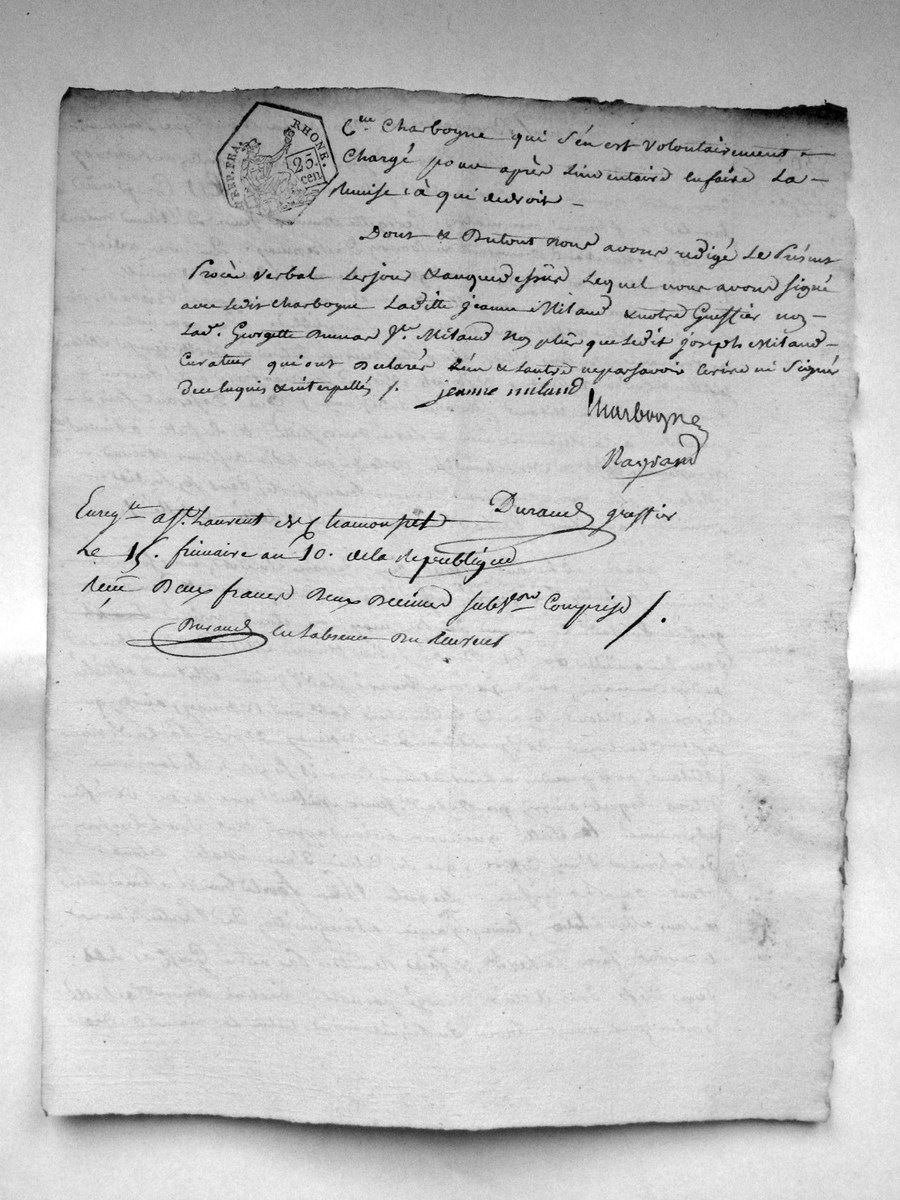 REP. FRA. RHONE.
25 cen
C.en Charbogne qui s'en est volontairement
chargé pour après linventaire en faire la
Remise à qui de droit
Dont & du tout nous avons redigé le présent
procès verbal les jour & an que dessus lequel nous avons signé
avec ledit Charbogne laditte jeanne Miland & notre Greffier non
lad. Georgette veuve Miland non plus que ledit joseph Miland
Curateur qui ont declarés l'un & l'autre ne pas savoir ecrire ni signer
De ce requis & interpellés /.
jeanne miland
Charbogne
Durand greffier
Enreg.tré à St. Laurent de Chamousset
Le 15. frimaire an 10. de la Republique
Reçu Deux francs Deux Decimes subv.on Comprise /.
Durand en l'absence du Receveur